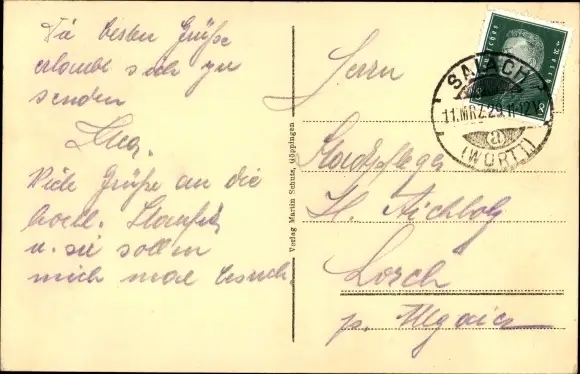 Die besten Grüße
erlaubt sich zu
senden
Viele Grüße an die
u. sie sollen
mich mal besuch.
Verlag Martin Schutz, Göppingen
Herrn
Stadtpfleger
H. Aichholz
Lorch
SALACH
11.MRZ.29.11-12V
a
(WÜRTT)
8